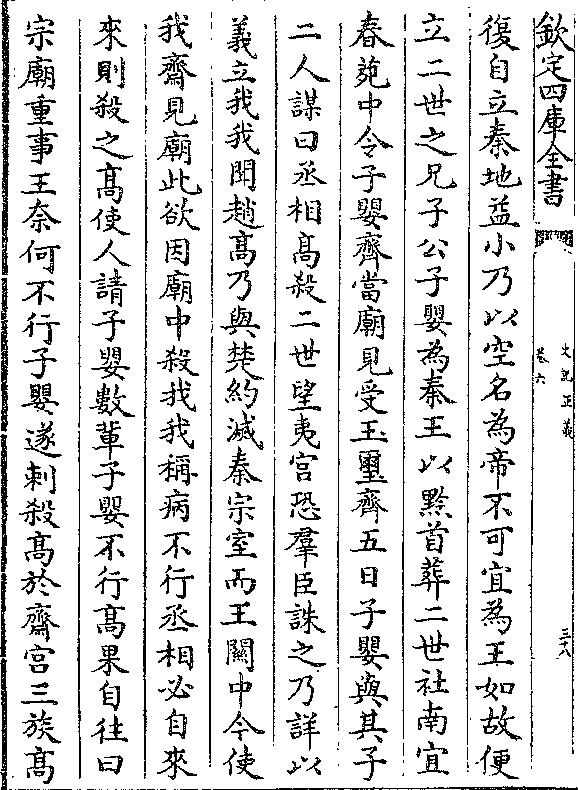 欽定四庫全書
史記正義
卷六
三八
復自立秦地益小乃以空名為帝不可宜為王如故便
立二世之兄子公子嬰為秦王以黔首葬二世社南宜
春苑中令子嬰齊當廟見受玉璽齊五日子嬰與其子
二人謀曰丞相髙殺二世望夷宮恐羣臣誅之乃詳以
義立我我聞趙髙乃與楚約滅秦宗室而王關中今使
我齋見廟此欲因廟中殺我我稱病不行丞相必自來
來則殺之髙使人請子嬰數軰子嬰不行髙果自往曰
宗廟重事王奈何不行子嬰遂刺殺髙於齋宮三族髙